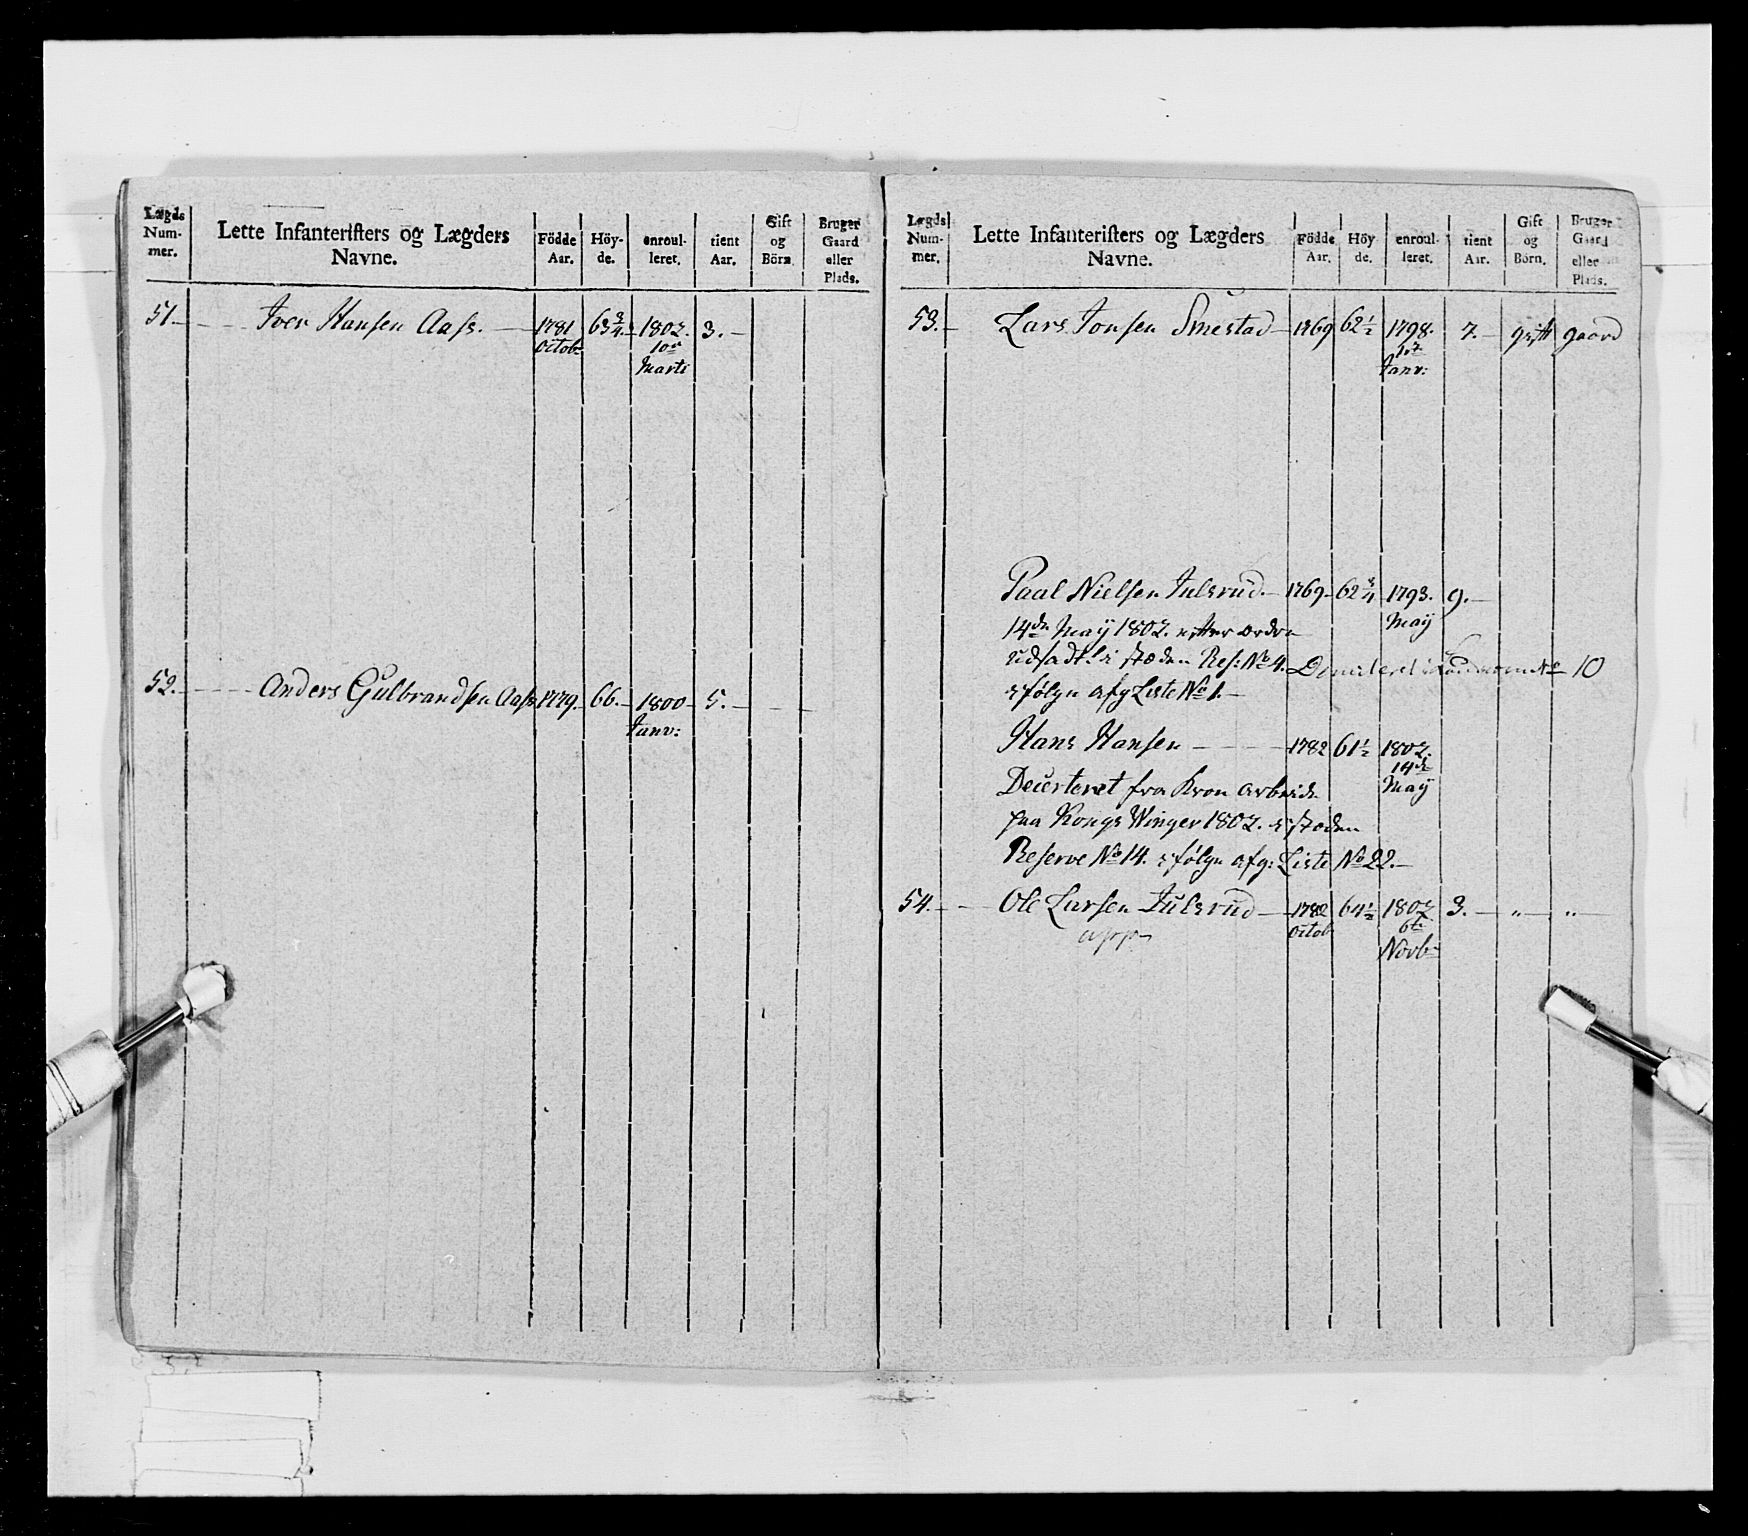 Lægds Num- mer. Lette Infanteristers og Lægders Navne. Födde Aar. Höy- de. enroul- leret. tient Aar. Gift og Börn. Bruger Gaard eller Plads.
51. Iver Hansen Aass. 1781 63 3/4 1802. 3.
Octob: 10de
Marti
52. Anders Gulbrandsen Aass 1779. 66. 1800 5.
Janv:
Lægds Num- mer. Lette Infanteristers og Lægders Navne. Födde Aar. Höy de. enroul- leret. tient Aar. Gift og Börn. Bruger Gaard eller Plads.
53. Lars Jonsen Smestad 1769 62 1/2 1798. 7. gift gaard
Janv:
Paal Nielsen Julsrud. 1769. 62 3/4 1793. 9.
14de May 1802. efter ordre May
udsadt i stæden Res: No 4. No 10
følge afg Liste No 1.
Hans Hansen 1782 61 1/2 1802.
14de
Decerteret fra Kron arbeide May
paa Kongs Winger 1802. i stæden
Reserve No 14. følge afg: Liste No 22.
54. Ole Larsen Julsrud 1782 64 1/2 1802 3. " "
app Octob 6te
Novb